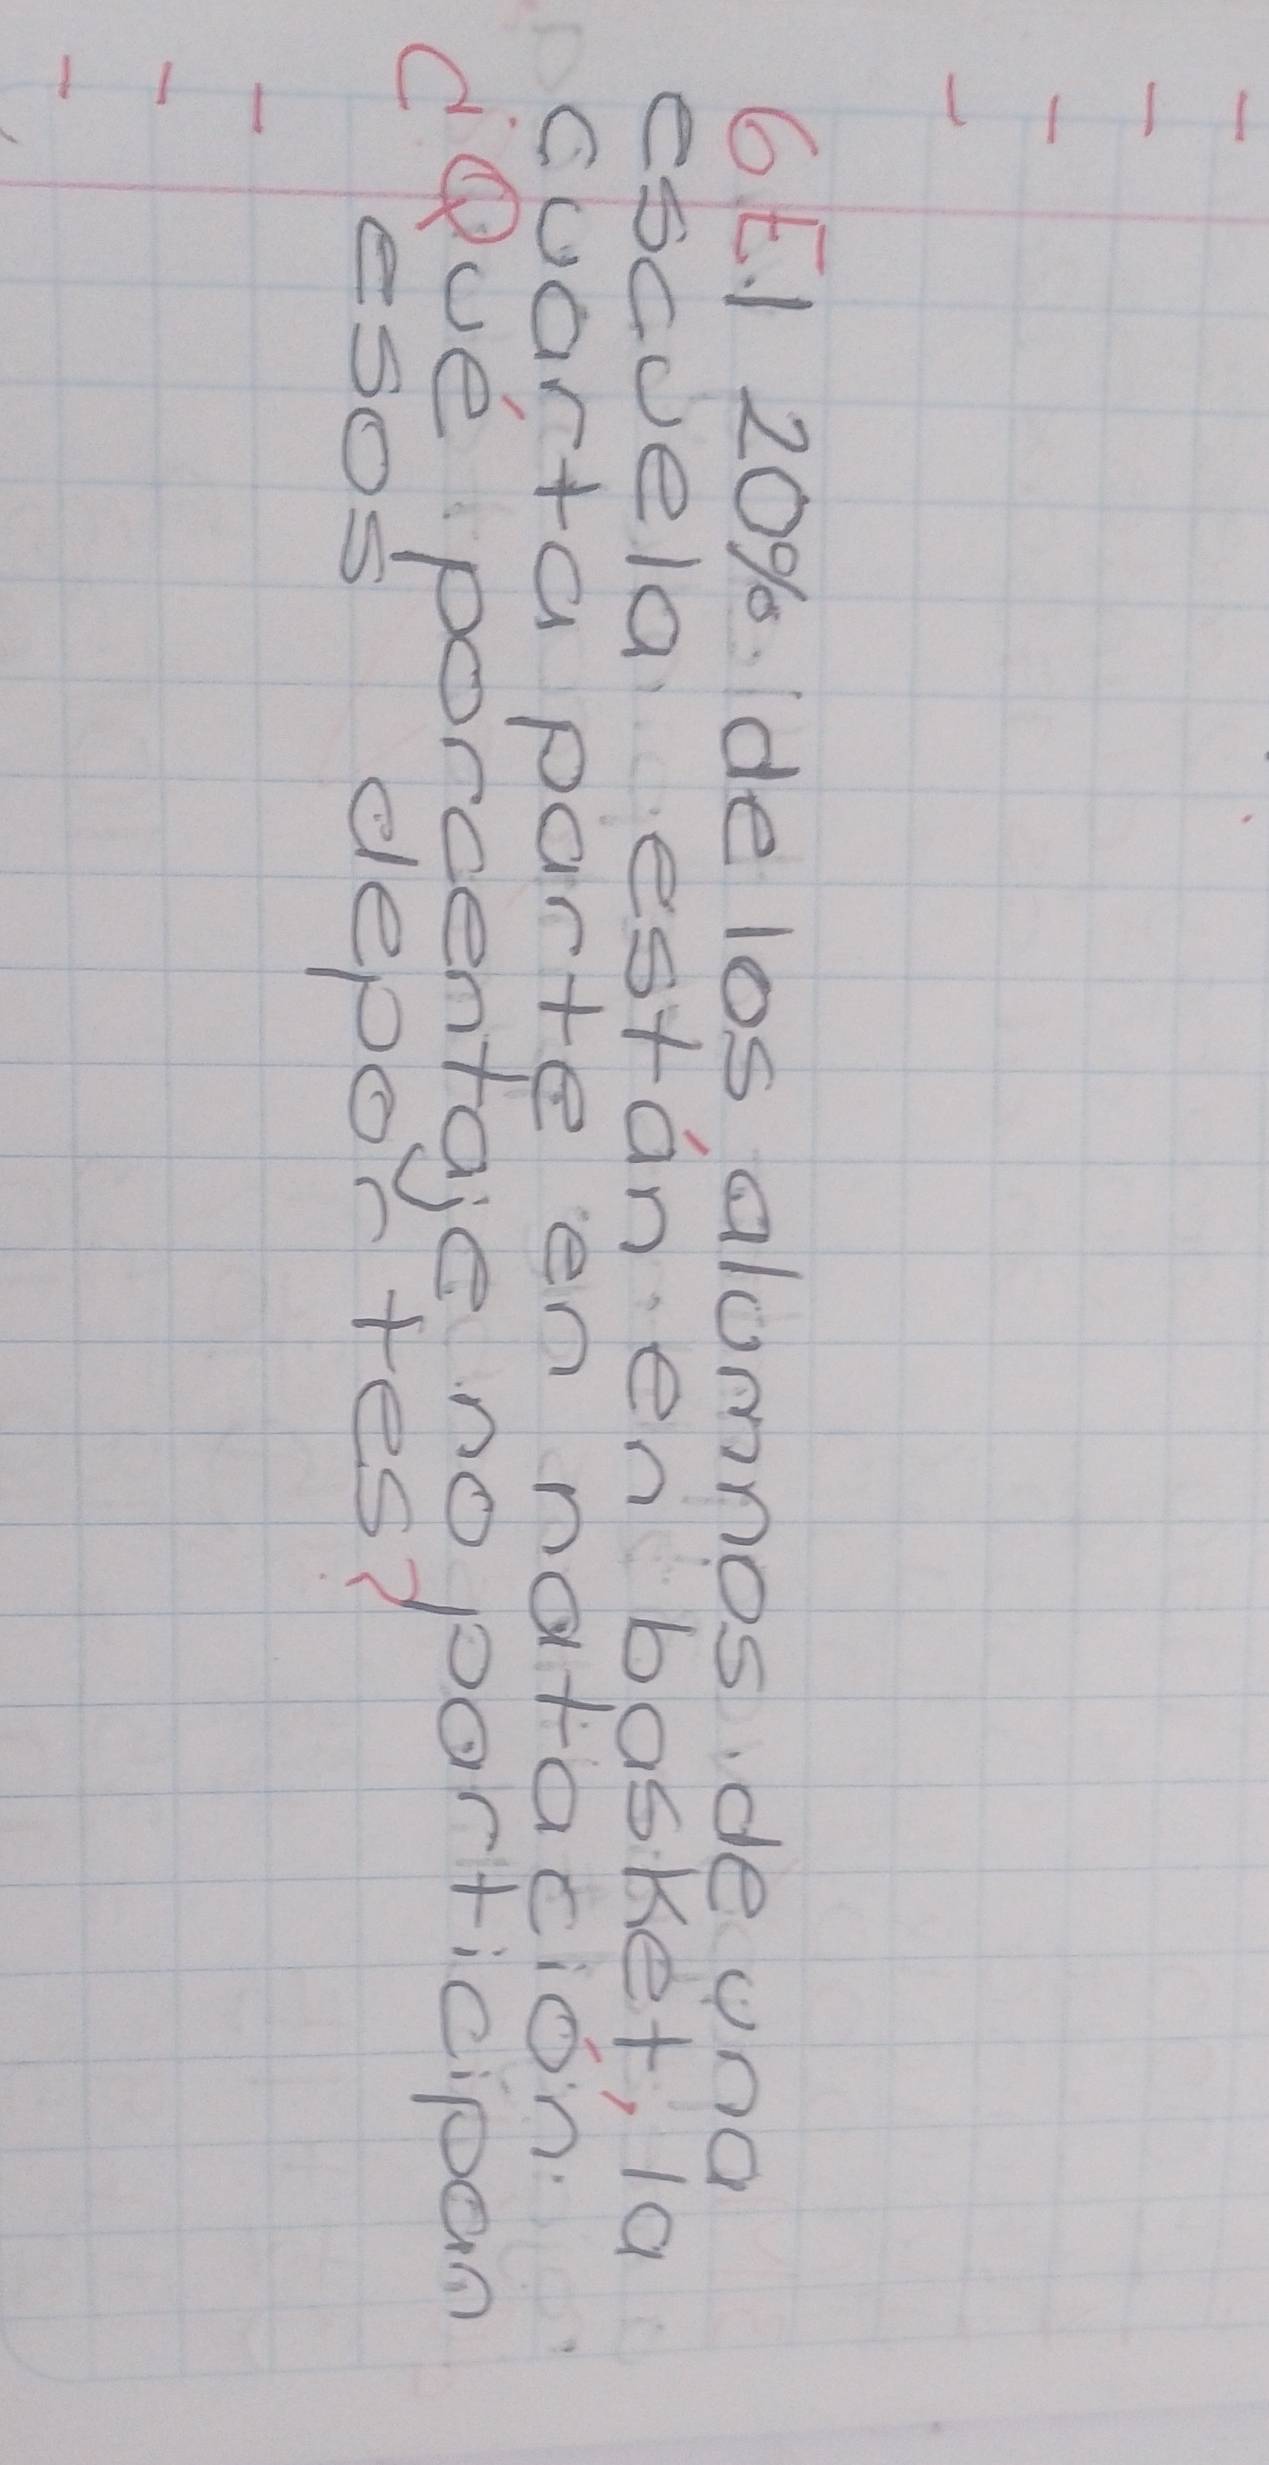 6 El 20% de los alumnos de una
escuela están en basket, la
cuarta parte en natación.
¿Qué porcentaje no participan
esos deportes?